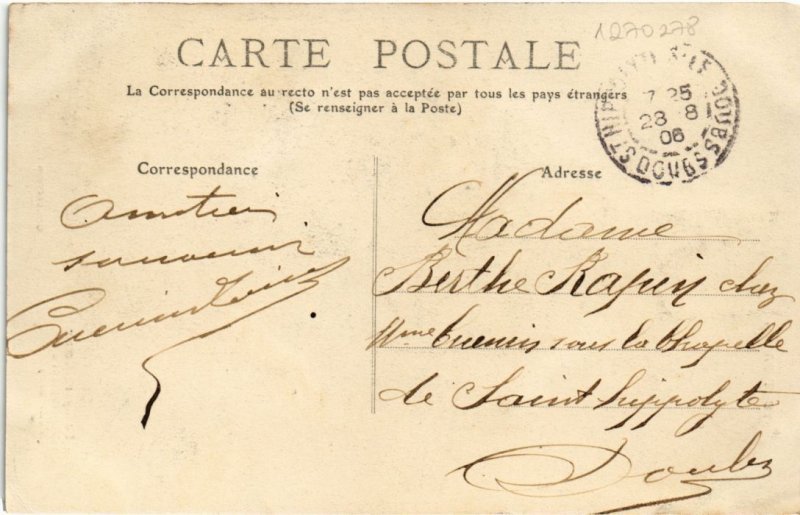 1270278
CARTE POSTALE
La Correspondance au recto n'est pas acceptée par tous les pays étrangers
(Se renseigner à la Poste)
7 25
28 8
06
ST HIPPOLYTE S LE DOUBS DOUBS
Correspondance
souvenir
Adresse
Madame
Berthe Rapin chez
Mme Cuenin sous la Chapelle
de Saint hippolyte
Doubs